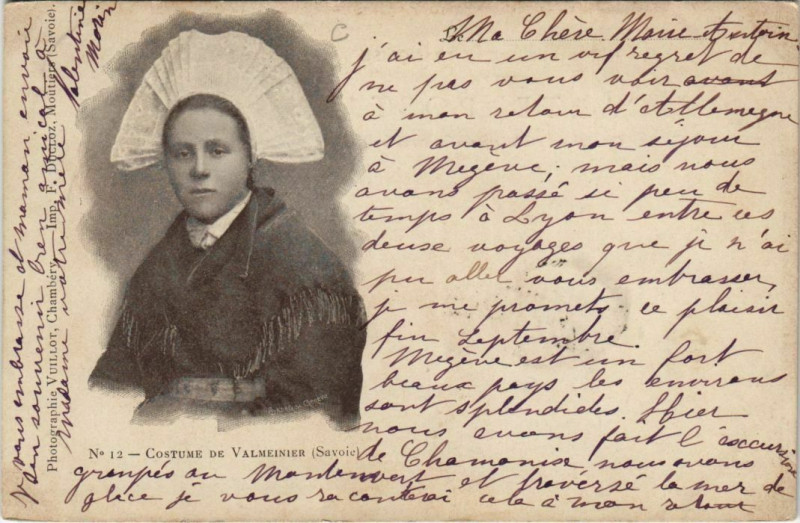 Ma Chère Marie Antoin
j'ai eu un vif regret de
ne pas vous voir avant
à mon retour d'Allemagne
et avant mon séjour
à Megève; mais nous
avons passé si peu de
temps à Lyon entre ces
deux voyages que je n'ai
pu aller vous embrasser,
je me promets ce plaisir
fin Septembre.
Megève est un fort
beau pays les environs
sont splendides. Hier
nous avons fait l'excursion
de Chamonix nous avons
grimpés au Montenvert et traversé la mer de
glace je vous raconterai cela à mon retour
Je vous embrasse et maman envoie
un souvenir bien amical à
Madame votre
Valentine
Photographie VUILLOT, Chambéry. Imp. F. DUCLOZ, Moutiers (Savoie).
N° 12 — COSTUME DE VALMEINIER (Savoie)